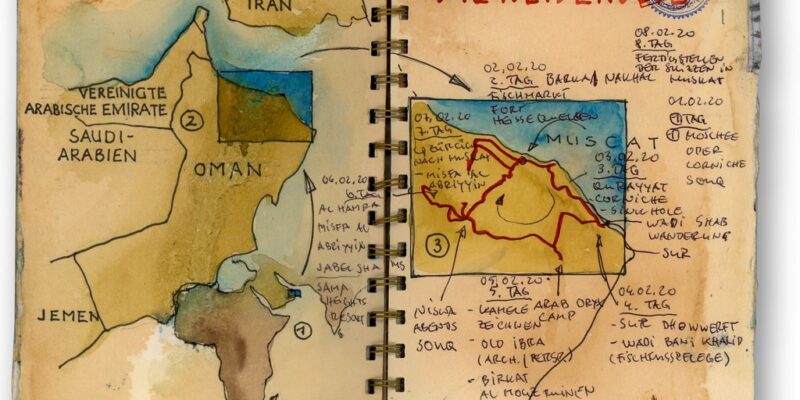 IRAN
VEREINIGTE
ARABISCHE EMIRATE
②
SAUDI-
ARABIEN
OMAN
JEMEN
①
06.02.20
6. TAG
AL HAMRA
MISFA AL
ABRIYYIN
JABEL SHAMS
SAMA
HEIGHTS
RESORT
02.02.20
2. TAG BARKA/NAKHAL
FISCHMARKT
FORT
HEISSE QUELLEN
08.02.20
8. TAG
FERTIGSTELLEN
DER SKIZZEN IN
MUSKAT
01.02.20
1. TAG
MOSCHEE
OPER
CORNICHE
SOUQ
07.02.20
7. TAG
ZURÜCK
NACH MUSKAT
- MISFA AL
ABRIYYIN
MUSCAT
03.02.20
3. TAG
QURAYYAT
CORNICHE
- SINKHOLE
WADI SHAB
WANDERUNG
SUR
③
NISWA
ABENDS
SOUQ
05.02.20
5. TAG
- KAMELE ARAB ORYX
ZEICHNEN CAMP
- OLD IBRA
(ARCH./PERSP.)
- BIRKAT
AL MOUZ RUINEN
04.02.20
4. TAG
- SUR DHOWWERFT
- WADI BANI KHALID